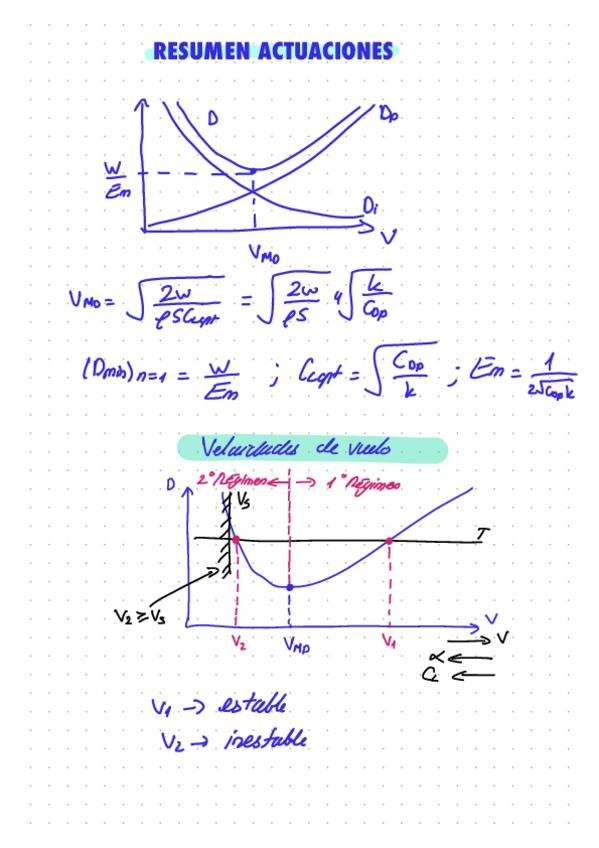 RESUMEN ACTUACIONES
D
Dp
W/Em
Di
V
VMD
VMD = √(2W/ρSCLopt) = √(2W/ρS) ⁴√(k/CDp)
(Dmin)n=1 = W/Em ; CLopt = √(CDp/k) ; Em = 1/2√CDp k
Velocidades de vuelo
2º Régimen ← → 1º Régimen
D
VS
T
V2 ≥ VS
V2 VMD V1 V
→ V
α ←
CL ←
V1 → estable
V2 → inestable